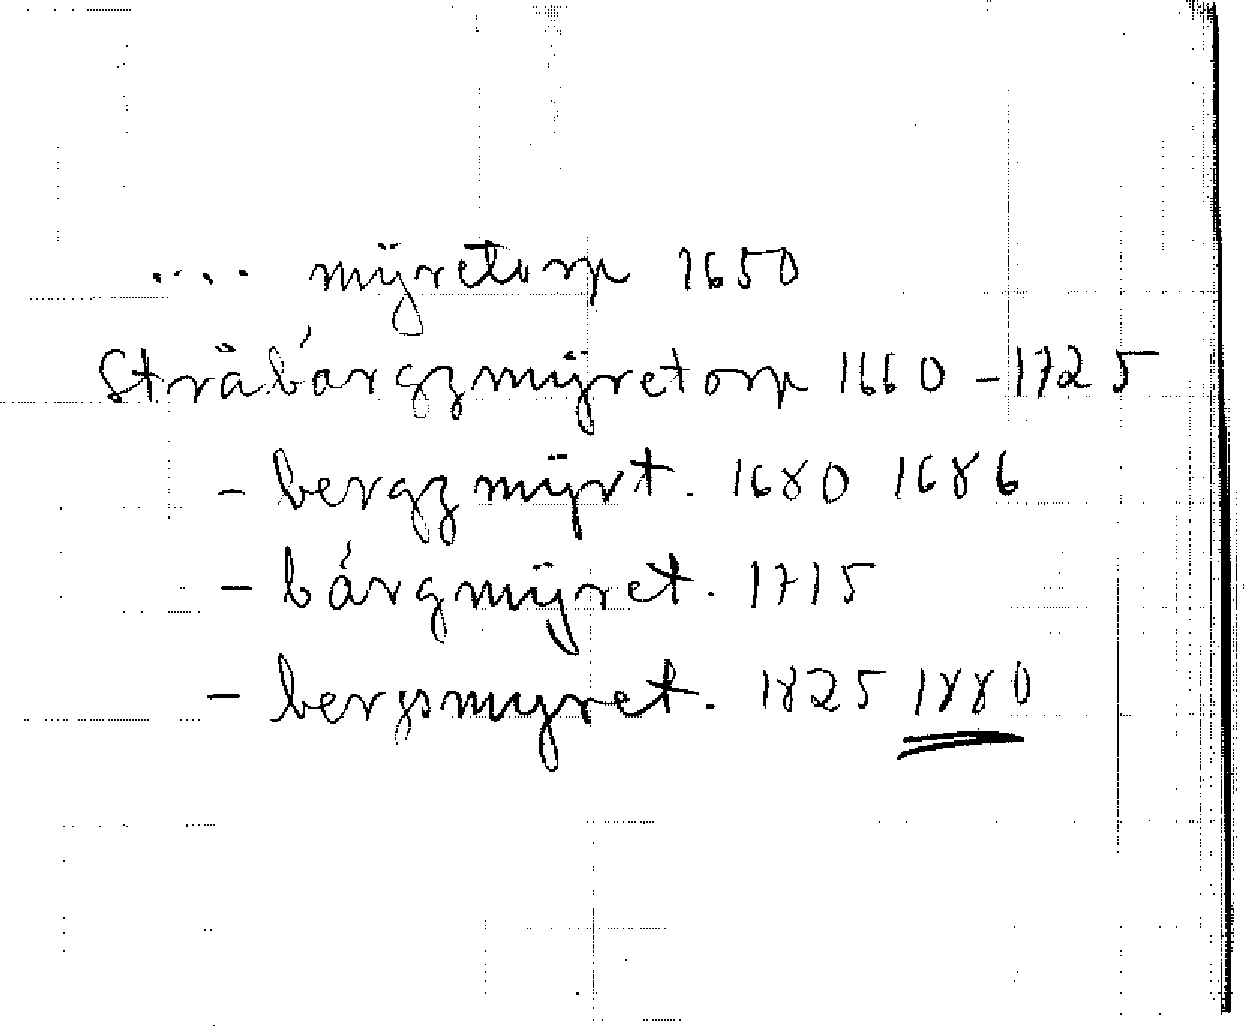 .... mÿretorp 1650
Stråbárgzmÿretorp 1660 - 1725
- bergzmÿrt. 1680 1686
- bárgmÿret. 1715
- bergsmyret. 1825 1880